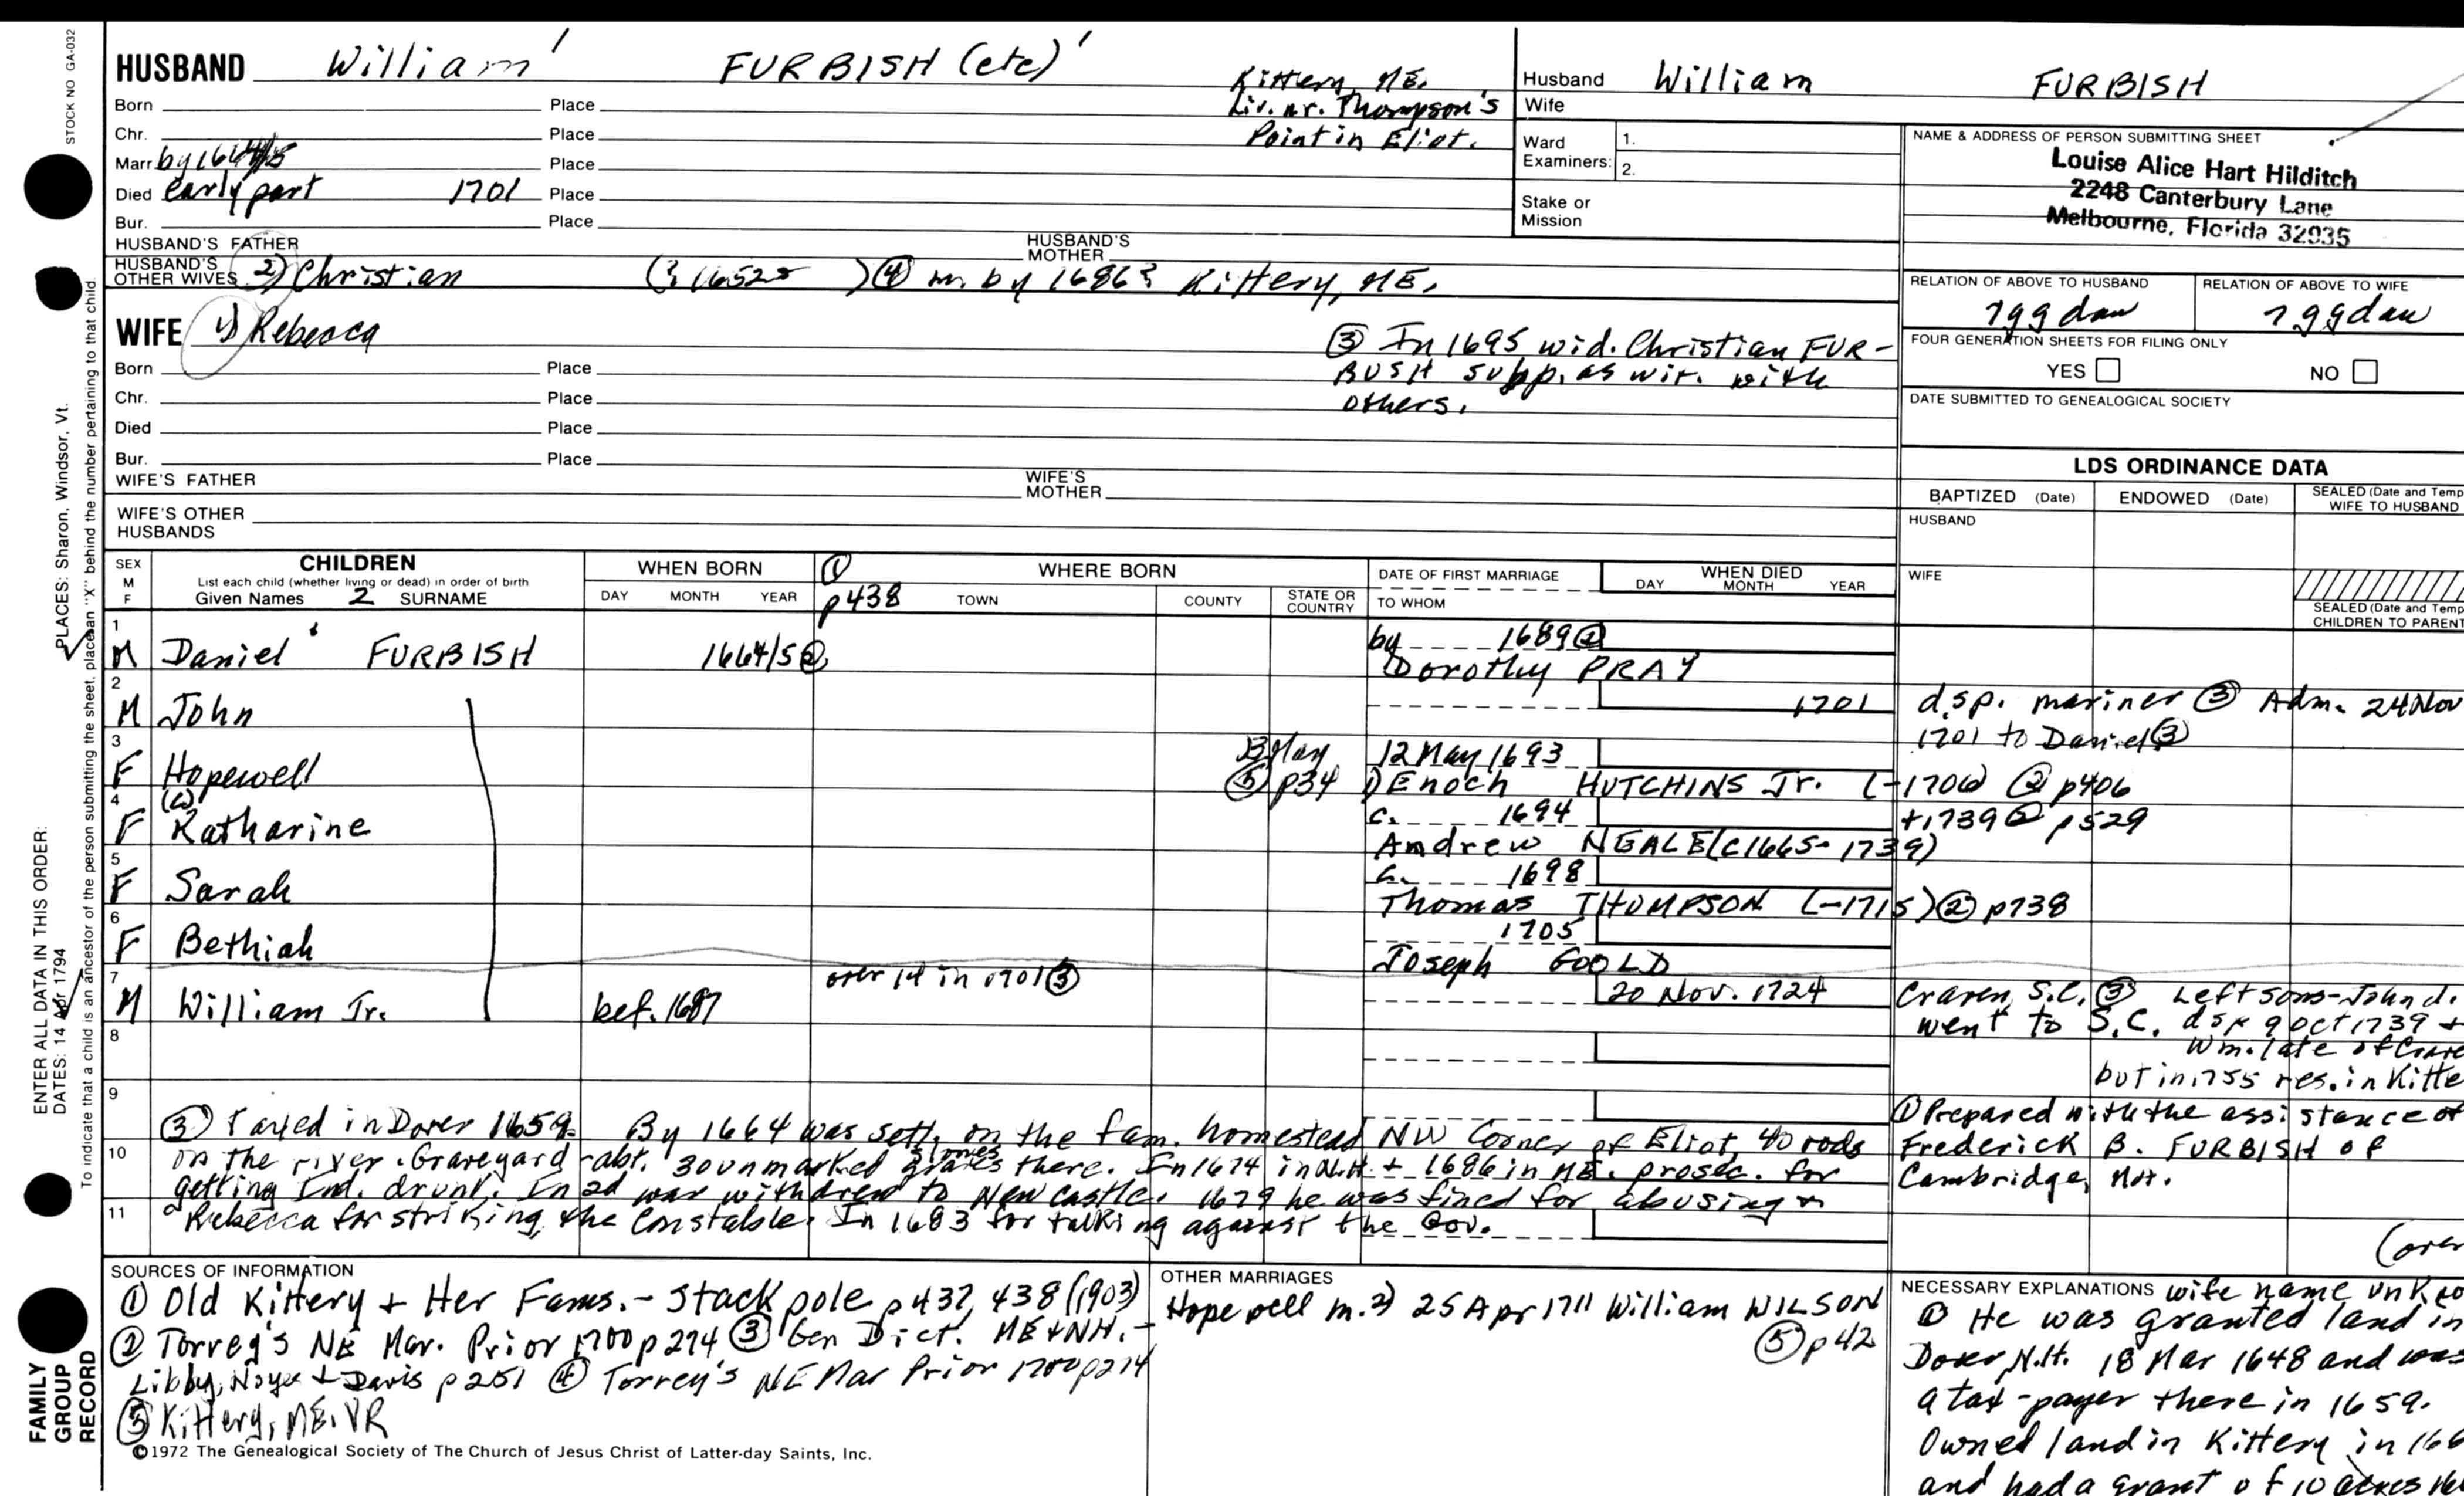 HUSBAND William ' FURBISH (etc) '
Kittery, ME.
Liv. nr. Thompson's
Point in Eliot.
Born Place
Chr. Place
Marr by 1664/5 Place
Died early part 1701 Place
Bur. Place
HUSBAND'S FATHER HUSBAND'S MOTHER
HUSBAND'S OTHER WIVES 2) Christian (? 1652 ) ④ m. by 1686? Kittery, ME.
WIFE 1) Rebecca
③ In 1695 wid. Christian FUR-
BUSH supp. as wit. with
others.
Born Place
Chr. Place
Died Place
Bur. Place
WIFE'S FATHER WIFE'S MOTHER
WIFE'S OTHER HUSBANDS
Husband William FURBISH
Wife
Ward Examiners: 1.
2.
Stake or Mission
NAME & ADDRESS OF PERSON SUBMITTING SHEET
Louise Alice Hart Hilditch
2248 Canterbury Lane
Melbourne, Florida 32935
RELATION OF ABOVE TO HUSBAND RELATION OF ABOVE TO WIFE
7ggdau 7ggdau
FOUR GENERATION SHEETS FOR FILING ONLY
YES NO
DATE SUBMITTED TO GENEALOGICAL SOCIETY
LDS ORDINANCE DATA
BAPTIZED (Date) ENDOWED (Date) SEALED (Date and Temp
WIFE TO HUSBAND
HUSBAND
WIFE
SEALED (Date and Temp
CHILDREN TO PARENT
SEX M F CHILDREN WHEN BORN ① WHERE BORN DATE OF FIRST MARRIAGE WHEN DIED
List each child (whether living or dead) in order of birth
Given Names 2 SURNAME DAY MONTH YEAR p438 TOWN COUNTY STATE OR COUNTRY TO WHOM DAY MONTH YEAR
1 M Daniel FURBISH 1664/5 ② by 1689 ②
Dorothy PRAY
2 M John 1701 d.s.p. mariner ③ Adm. 24 Nov
1701 to Daniel ③
3 F Hopewell B. May ⑤ p34 12 May 1693
1) Enoch HUTCHINS Jr. (-1706) ② p406
4 F (C) Katharine c. 1694 +1739 ② p529
Andrew NEALE (c1665-1739)
5 F Sarah c. 1698
Thomas THOMPSON (-1715) ② p738
6 F Bethiah 1705
Joseph GOOLD
7 M William Jr. bef. 1687 over 14 in 1701 ③ 20 Nov. 1724 Craven, S.C. ③ Left sons - John d.
went to S.C. dsp 9 Oct 1739 +
Wm. late of Crave
but in 1755 res. in Kitte
8
9
③ Taxed in Dover 1659. By 1664 was settl. on the fam. homestead NW Corner of Eliot, 40 rods
10 on the river. Graveyard - abt. 30 unmarked graves stones there. In 1674 in N.H. + 1686 in ME. prosec. for
getting Ind. drunk. In 2d war withdrew to New Castle. 1679 he was fined for abusing &
11 Rebecca for striking the Constable. In 1683 for talking against the Gov.
① Prepared with the assistance of
Frederick B. FURBISH of
Cambridge,
(over
SOURCES OF INFORMATION
① Old Kittery + Her Fams. - Stackpole p437, 438 (1903)
② Torrey's NE Mar. Prior 1700 p274 ③ Gen Dict. ME + NH. -
Libby, Noyes + Davis p251 ④ Torrey's NE Mar Prior 1700 p274
⑤ Kittery, ME. VR
©1972 The Genealogical Society of The Church of Jesus Christ of Latter-day Saints, Inc.
OTHER MARRIAGES
Hopewell m. 2) 25 Apr 1711 William WILSON
⑤ p42
NECESSARY EXPLANATIONS wife name unkno
① He was granted land in
Dover, N.H. 18 Mar 1648 and was
a tax-payer there in 1659.
Owned land in Kittery in 166
and had a grant of 10 acres 16
STOCK NO GA-032
ENTER ALL DATA IN THIS ORDER:
PLACES: Sharon, Windsor, Vt.
DATES: 14 Apr 1794
To indicate that a child is an ancestor of the person submitting the sheet, place an "X" behind the number pertaining to that child.
FAMILY
GROUP
RECORD